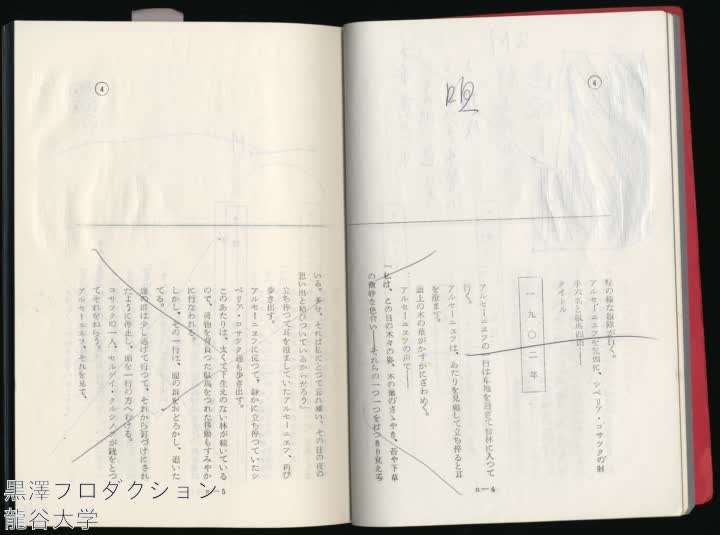 ④
呾
程の様な叢林が行く。
アルセーニエフを先頭に、シベリア・コサツクの射
手六名と駄馬四頭——
タイトル
一九〇二年
アルセーニエフの一行は草地を過ぎて密林に入つて
行く。
アルセーニエフは、あたりを見廻して立ち停ると耳
を澄ます。
頭上の木の葉がかすかにざわめく。
アルセーニエフの声で——
「私は、この日の木々の姿、木の葉のささやき、苔や下草
の微妙な色合い——それらの一つ一つをはつきり覚えて
n—4
④
いる。多分、それは私にとつて忘れ難い、その日の夜の
思い出と結びついているからだろう」
立ち停つて耳を澄ましていたアルセーニエフ、再び
歩き出す。
アルセーニエフに従つて、静かに立ち停つていたシ
ベリア・コサツク達も歩き出す。
このあたりは、太くて下生えのない林が続いている
ので、荷物を背負つた駄馬をつれた移動もすみやか
に行なわれる。
しかし、その一行は、鹿の群をおどろかし、追いた
てる。
鹿の群は少し逃げて行つて、それから釘づけにされ
たように停止し、頭を一行の方へむける。
コサツクの一人、セルゲイ・タルシノフが銃をとつ
てそれをねらう。
アルセーニエフ、それを見て、
n—5
黒澤プロダクション
龍谷大学